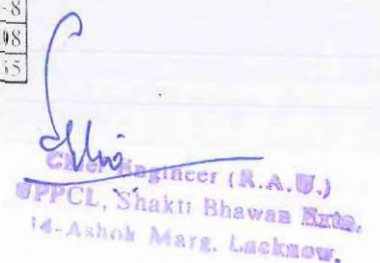 -8
08
Chief Engineer (R.A.U.)
UPPCL, Shakti Bhawan Extn.
14-Ashok Marg, Lucknow.